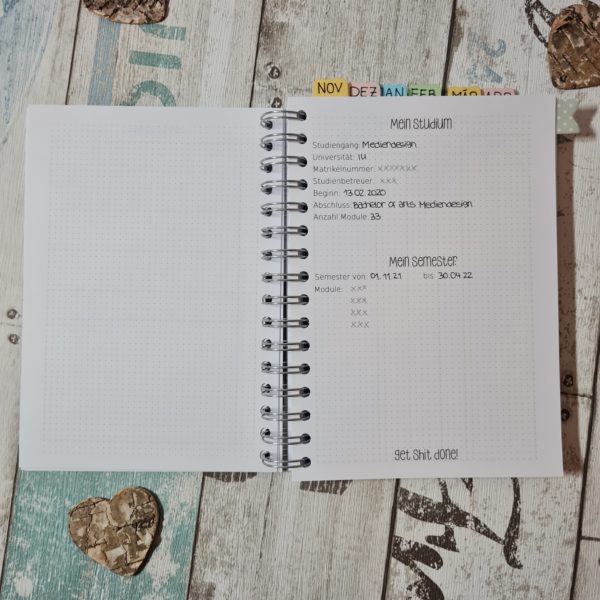 NOV DEZ JAN FEB MÄR APR
Mein Studium
Studiengang: Mediendesign
Universität: IU
Matrikelnummer: xxxxxxx
Studienbetreuer: xxx
Beginn: 13.02.2020
Abschluss: Bachelor of arts Mediendesign
Anzahl Module: 33
Mein Semester
Semester von: 01.11.21 bis: 30.04.22
Module: xxx
xxx
xxx
xxx
get Shit done!